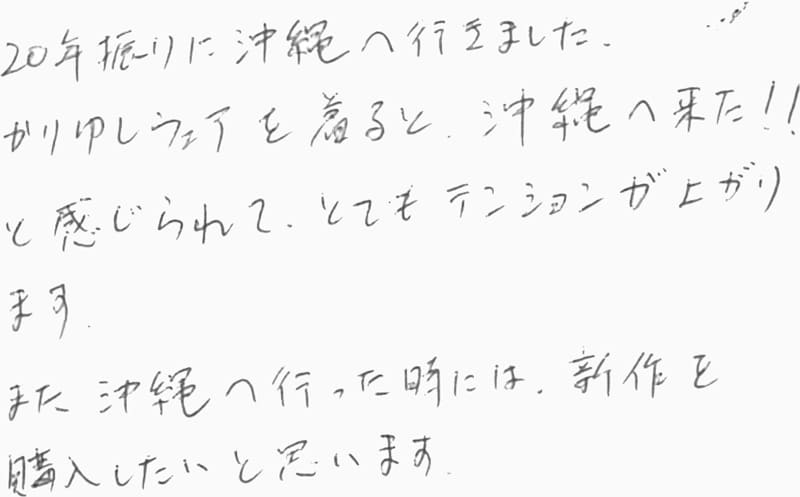 20年振りに沖縄へ行きました.
かりゆしウェアを着ると、沖縄へ来た!!
と感じられて、とてもテンションが上がり
ます.
また沖縄へ行った時には、新作を
購入したいと思います.